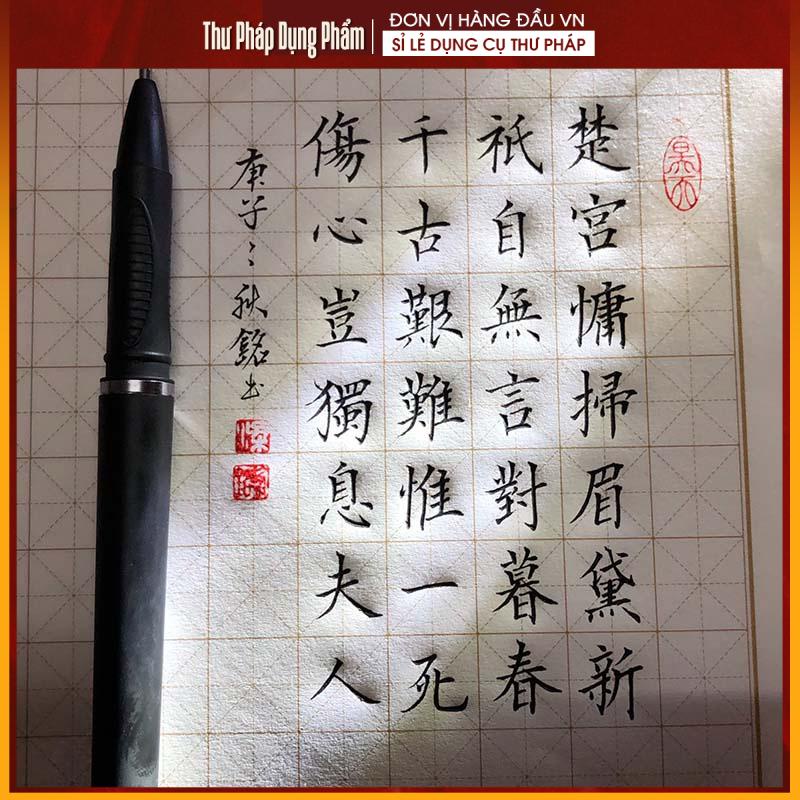 Thư Pháp Dụng Phẩm
ĐƠN VỊ HÀNG ĐẦU VN
SỈ LẺ DỤNG CỤ THƯ PHÁP
楚宮慵掃眉黛新
祇自無言對暮春
千古艱難惟一死
傷心豈獨息夫人
庚子之秋銘书